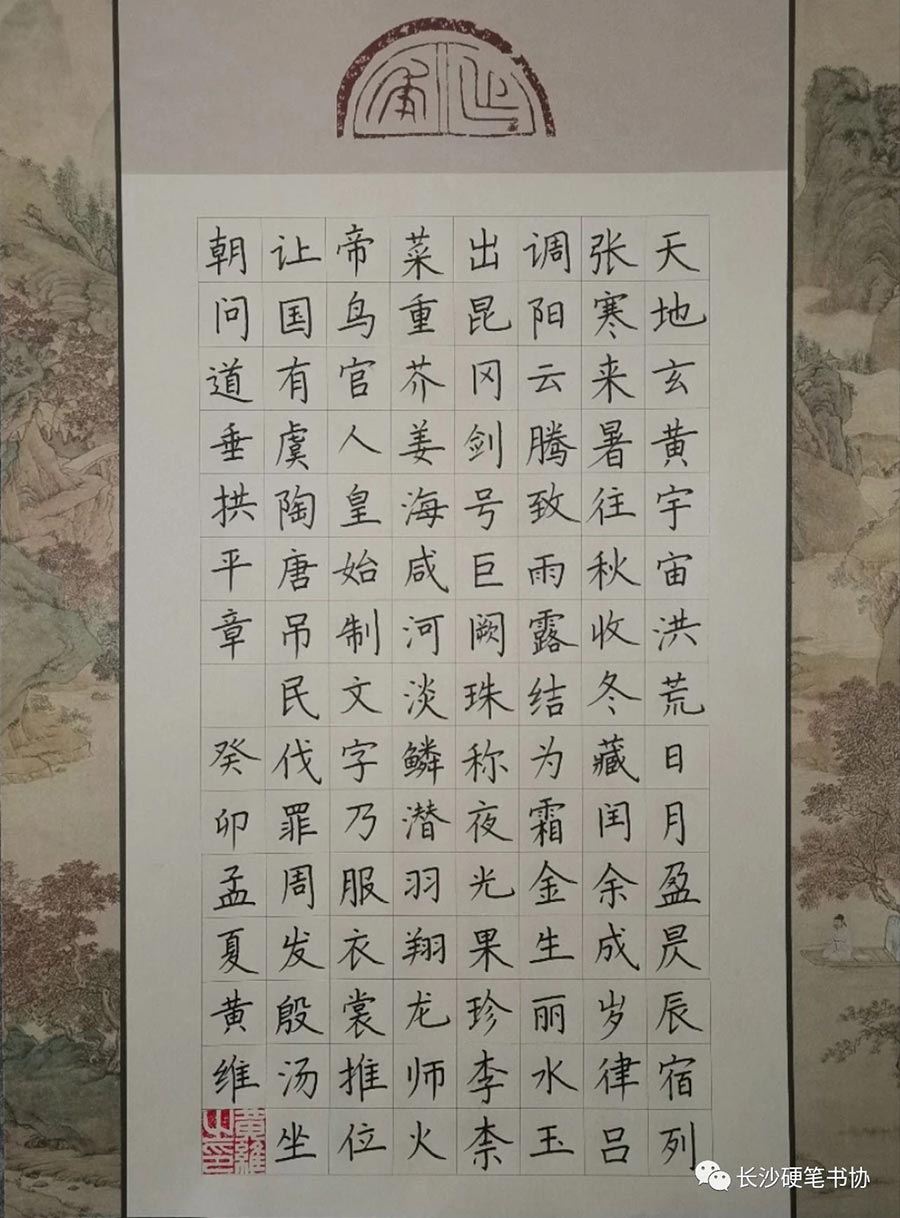 延年
天地玄黄宇宙洪荒日月盈昃辰宿列
张寒来暑往秋收冬藏闰余成岁律吕
调阳云腾致雨露结为霜金生丽水玉
出昆冈剑号巨阙珠称夜光果珍李柰
菜重芥姜海咸河淡鳞潜羽翔龙师火
帝鸟官人皇始制文字乃服衣裳推位
让国有虞陶唐吊民伐罪周发殷汤坐
朝问道垂拱平章 癸卯孟夏黄维
黄維之印
长沙硬笔书协